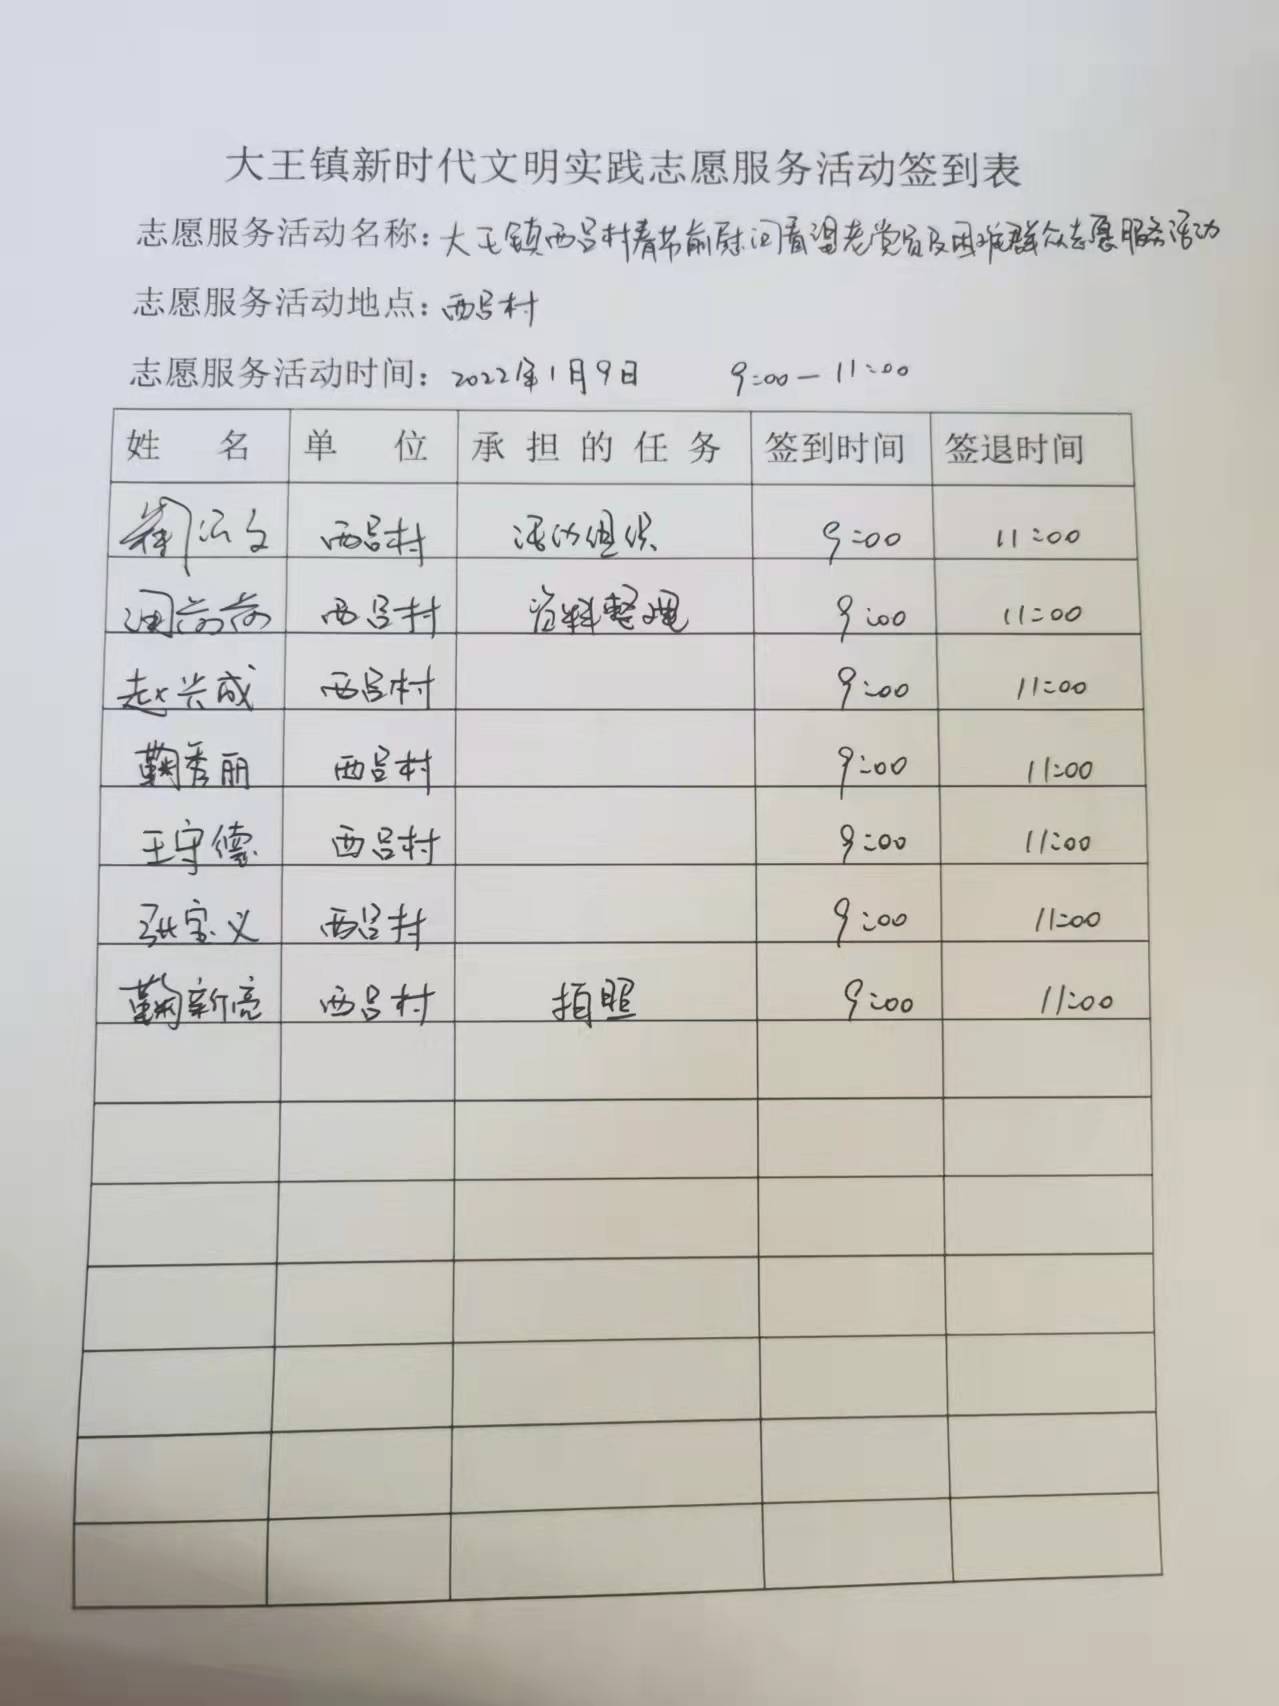 大王镇新时代文明实践志愿服务活动签到表
志愿服务活动名称：大王镇西吕村春节前慰问看望老党员及困难群众志愿服务活动
志愿服务活动地点：西吕村
志愿服务活动时间：2022年1月9日 9:00—11:00
姓 名 单 位 承担的任务 签到时间 签退时间
西吕村 活动组织 9:00 11:00
西吕村 资料整理 9:00 11:00
赵兴成 西吕村 9:00 11:00
鞠秀丽 西吕村 9:00 11:00
王守德 西吕村 9:00 11:00
张宝义 西吕村 9:00 11:00
鞠新亮 西吕村 拍照 9:00 11:00